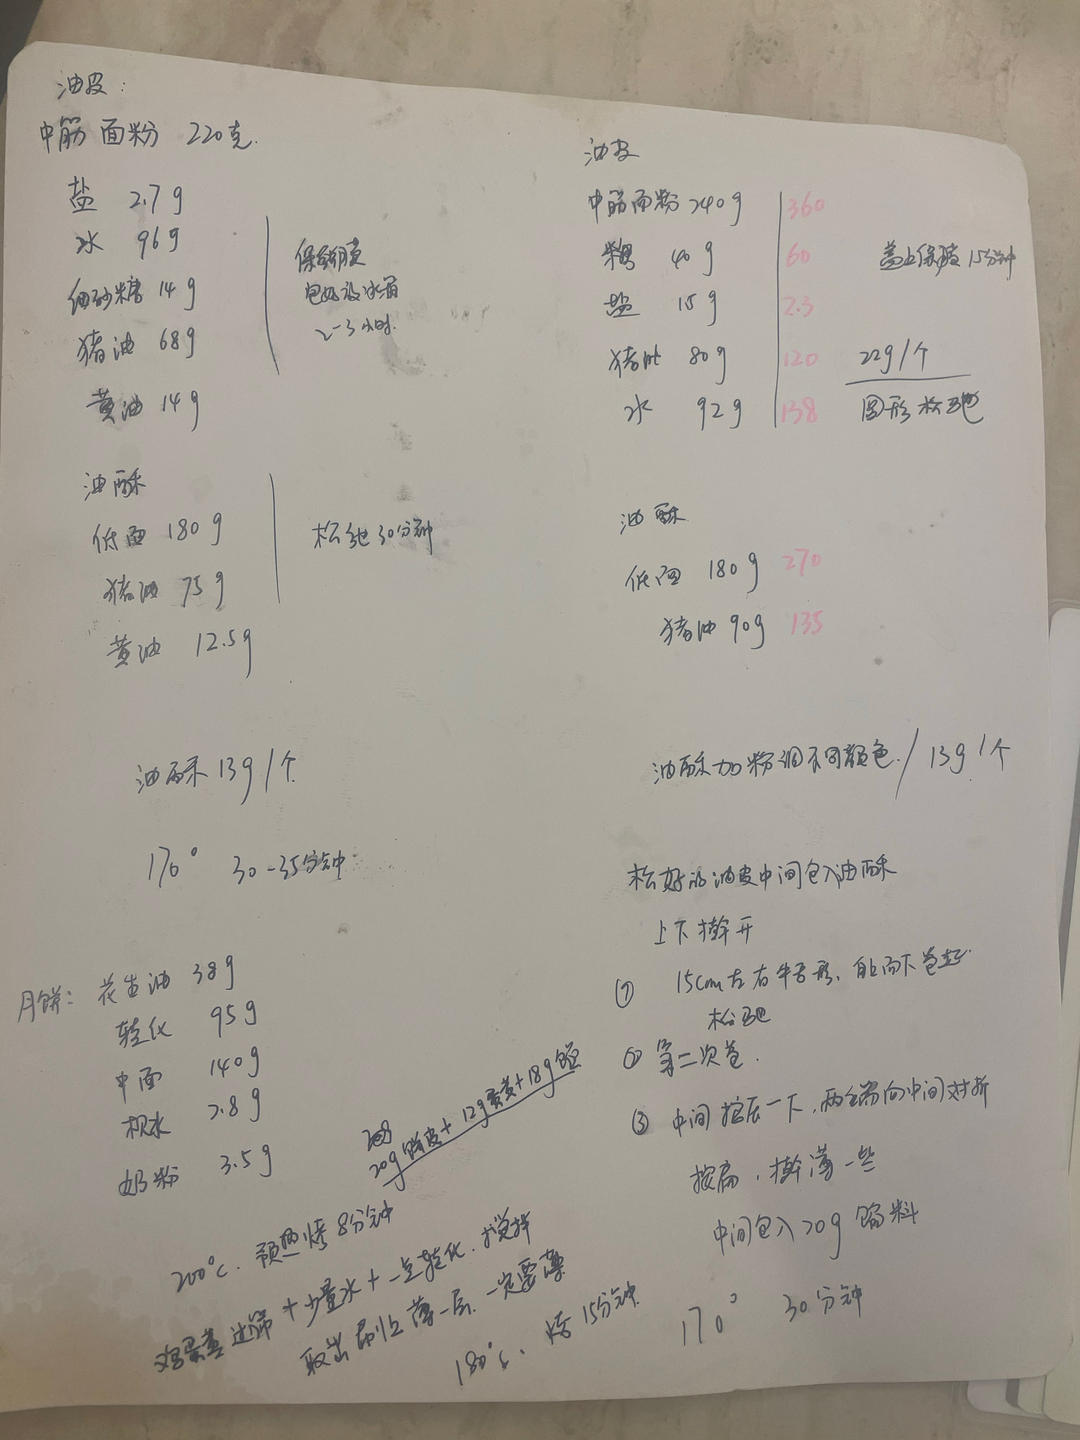 油皮：
中筋面粉 220克.
盐 2.7g
水 96g
细砂糖 14g
猪油 68g
黄油 14g
保鲜膜
包好放冰箱
2-3小时.
油酥
低面 180g
猪油 75g
黄油 12.5g
松弛30分钟
油酥 13g/个
170° 30-35分钟
月饼： 花生油 38g
转化 95g
中面 140g
枧水 2.8g
奶粉 3.5g
20g饼皮+12g蛋黄+18g馅
200°c. 预热烤8分钟
鸡蛋黄过筛+少量水+一点转化.搅拌
取出刷上薄一层.一定要薄
180°c. 烤15分钟
油皮
中筋面粉 240g 360
糖 40g 60
盐 15g 2.3
猪油 80g 120
水 92g 138
盖上保膜15分钟
22g/个
圆形松弛
油酥
低面 180g 270
猪油 90g 135
油酥加粉调不同颜色/13g/个
松好的油皮中间包入油酥
上下擀开
① 15cm左右牛舌形,自上而下卷起
松弛
② 第二次卷.
③ 中间按压一下,两端向中间对折
按扁,擀薄一些
中间包入20g馅料
170° 30分钟